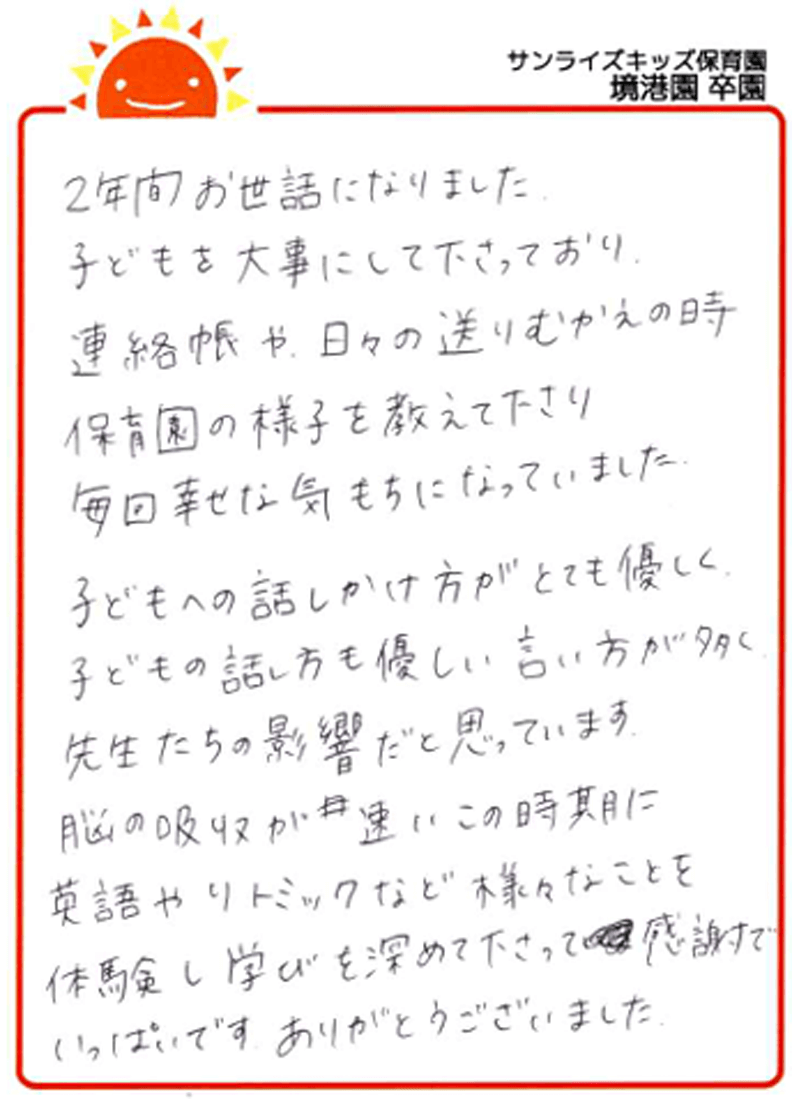 サンライズキッズ保育園
境港園 卒園
2年間お世話になりました.
子どもを大事にして下さっており.
連絡帳や、日々の送りむかえの時
保育園の様子を教えて下さり
毎回幸せな気もちになっていました.
子どもへの話しかけ方がとても優しく.
子どもの話し方も優しい言い方が多く.
先生たちの影響だと思っています.
脳の吸収が速いこの時期に
英語やリトミックなど様々なことを
体験し学びを深めて下さって感謝で
いっぱいです.ありがとうございました.